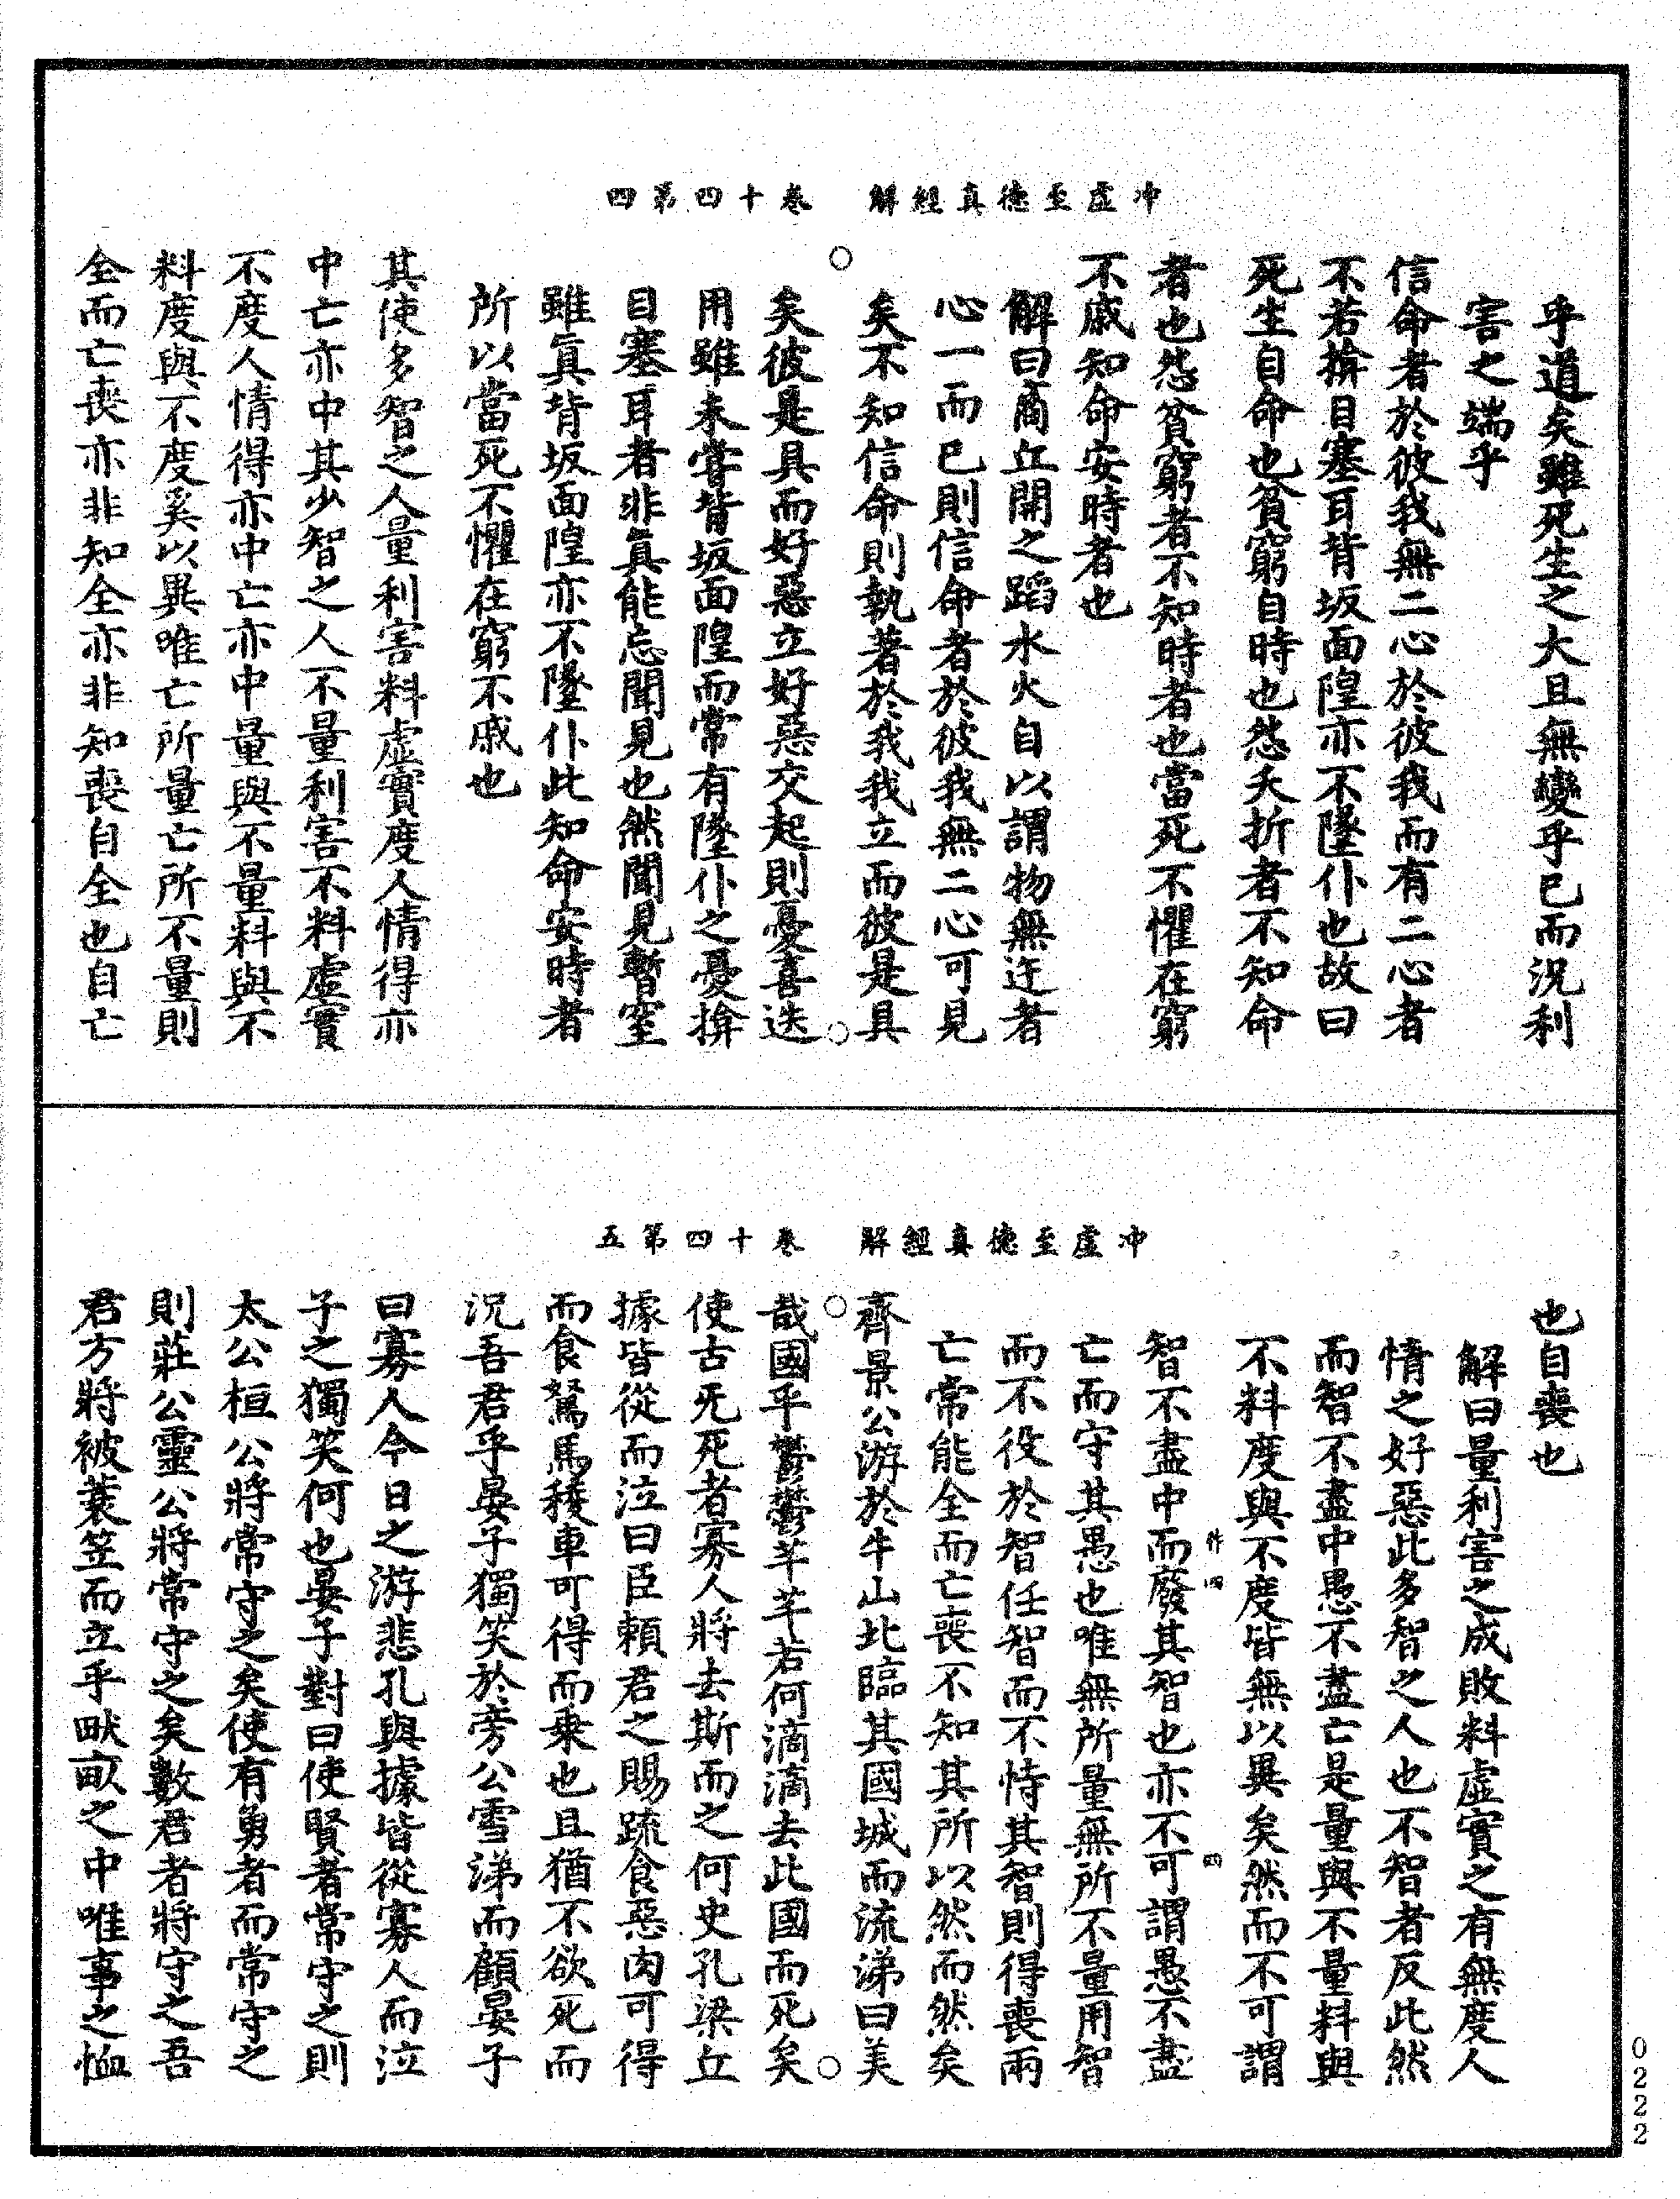 冲虛至德真經解　卷十四第四
乎道矣雖死生之大且無變乎已而況利
害之端乎
信命者於彼我無二心於彼我而有二心者
不若揜目塞耳背坂面隍亦不墜仆也故曰
死生自命也貧窮自時也怨夭折者不知命
者也怨貧窮者不知時者也當死不懼在窮
不戚知命安時者也
解曰商丘開之蹈水火自以謂物無迕者
心一而已則信命者於彼我無二心可見
矣不知信命則執著於我我立而彼是具
矣彼是具而好惡立好惡交起則憂喜迭
用雖未嘗背坂面隍而常有墜仆之憂揜
目塞耳者非眞能忘聞見也然聞見暫窒
雖眞背坂面隍亦不墜仆此知命安時者
所以當死不懼在窮不戚也
其使多智之人量利害料虛實度人情得亦
中亡亦中其少智之人不量利害不料虛實
不度人情得亦中亡亦中量與不量料與不
料度與不度奚以異唯亡所量亡所不量則
全而亡喪亦非知全亦非知喪自全也自亡
冲虛至德真經解　卷十四第五
也自喪也
解曰量利害之成敗料虛實之有無度人
情之好惡此多智之人也不智者反此然
而智不盡中愚不盡亡是量與不量料與
不料度與不度皆無以異矣然而不可謂
智不盡中而廢其智也亦不可謂愚不盡
亡而守其愚也唯無所量無所不量用智
而不役於智任智而不恃其智則得喪兩
亡常能全而亡喪不知其所以然而然矣
齊景公游於牛山北臨其國城而流涕曰美
哉國乎鬱鬱芊芊若何滴滴去此國而死矣
使古无死者寡人將去斯而之何史孔梁丘
據皆從而泣曰臣賴君之賜疏食惡肉可得
而食駑馬稜車可得而乗也且猶不欲死而
況吾君乎晏子獨笑於旁公雪涕而顧晏子
曰寡人今日之游悲孔與據皆從寡人而泣
子之獨笑何也晏子對曰使賢者常守之則
太公桓公將常守之矣使有勇者而常守之
則莊公靈公將常守之矣數君者將守之吾
君方將被蓑笠而立乎畎畝之中唯事之恤
0222